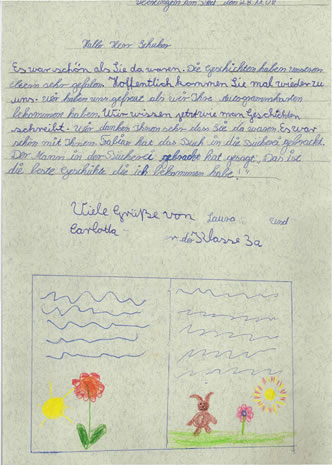 am den 28.11.08
Hallo Herr Schuker
Es war schön als Sie da waren. Die Geschichten haben unseren
sehr gefallen Hoffentlich kommen Sie mal wieder zu
uns. Wir haben uns gefreut als wir Ihre Autogrammkarten
bekommen haben. Wir wissen jetzt wie man Geschichten
schreibt. Wir danken Ihnen sehr das Sie da waren. Es war
schön mit Ihnen. Fabian hat das Buch in die Bücherei gebracht.
Der Mann in der Bücherei gebracht hat gesagt: Das ist
die beste Geschichte die ich bekommen habe!
Viele Grüße von Laura und
Carlotta der Klasse 3a